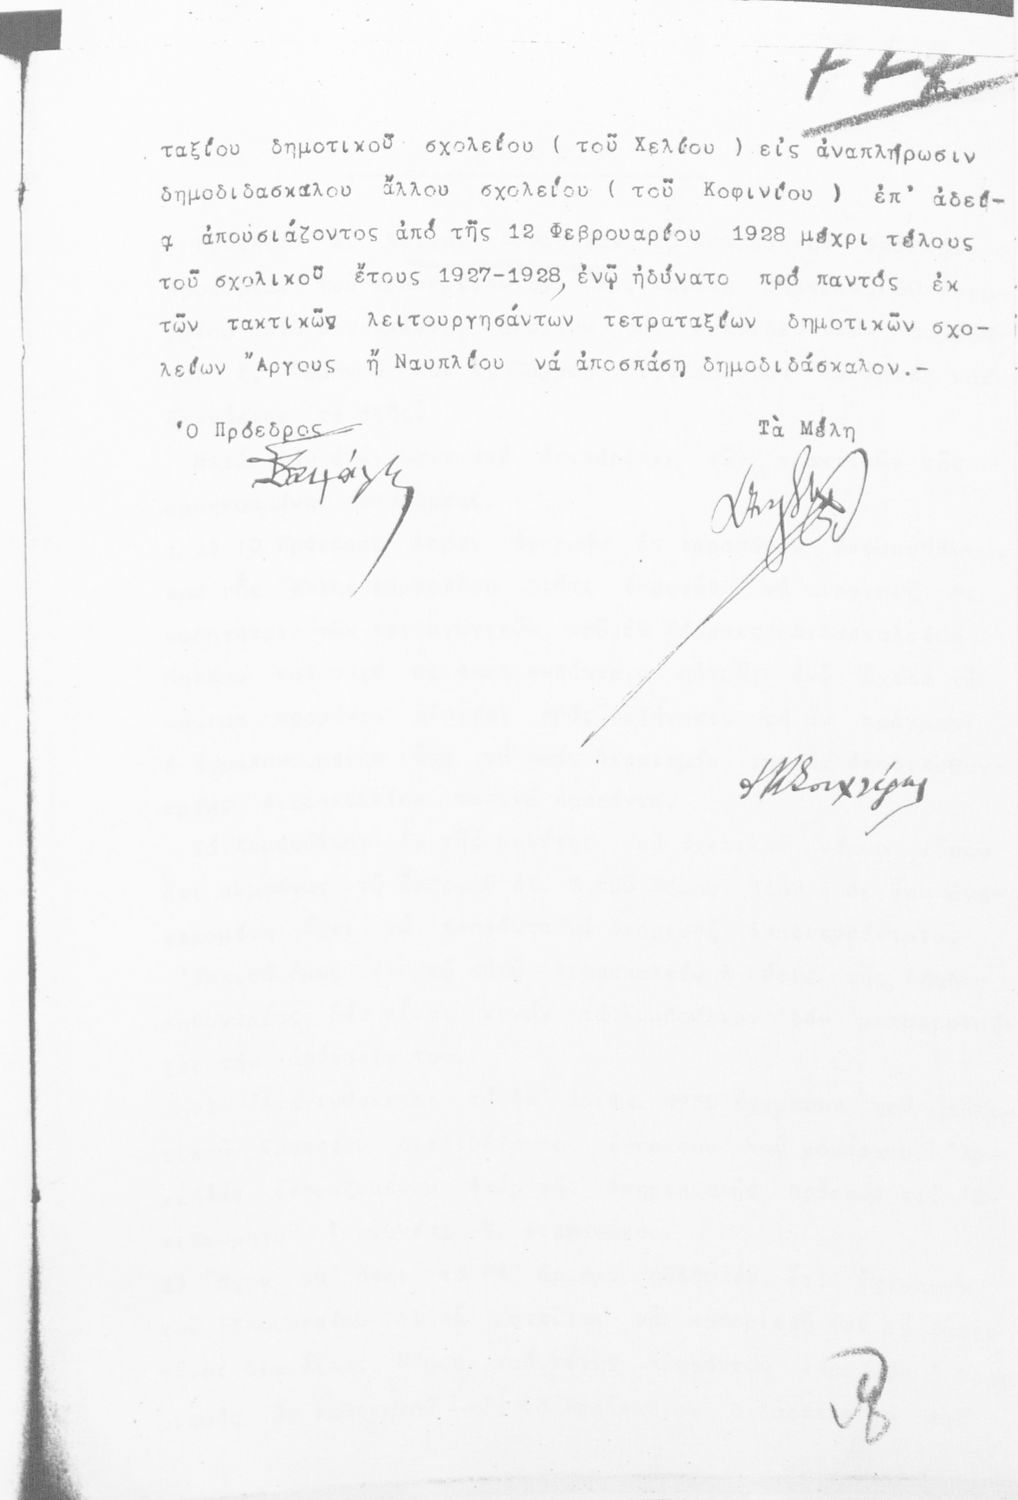 ταξίου δημοτικοῦ σχολείου ( τοῦ Χελίου ) εἰς ἀναπλήρωσιν
δημοδιδασκάλου ἄλλου σχολείου ( τοῦ Κοφινίου ) ἐπ' ἀδεί-
ᾳ ἀπουσιάζοντος ἀπό τῆς 12 Φεβρουαρίου 1928 μέχρι τέλους
τοῦ σχολικοῦ ἔτους 1927-1928, ἐνῷ ἠδύνατο πρό παντός ἐκ
τῶν τακτικῶν λειτουργησάντων τετραταξίων δημοτικῶν σχο-
λείων Ἄργους ἤ Ναυπλίου νά ἀποσπάσῃ δημοδιδάσκαλον.-
Ὁ Πρόεδρος Τὰ Μέλη